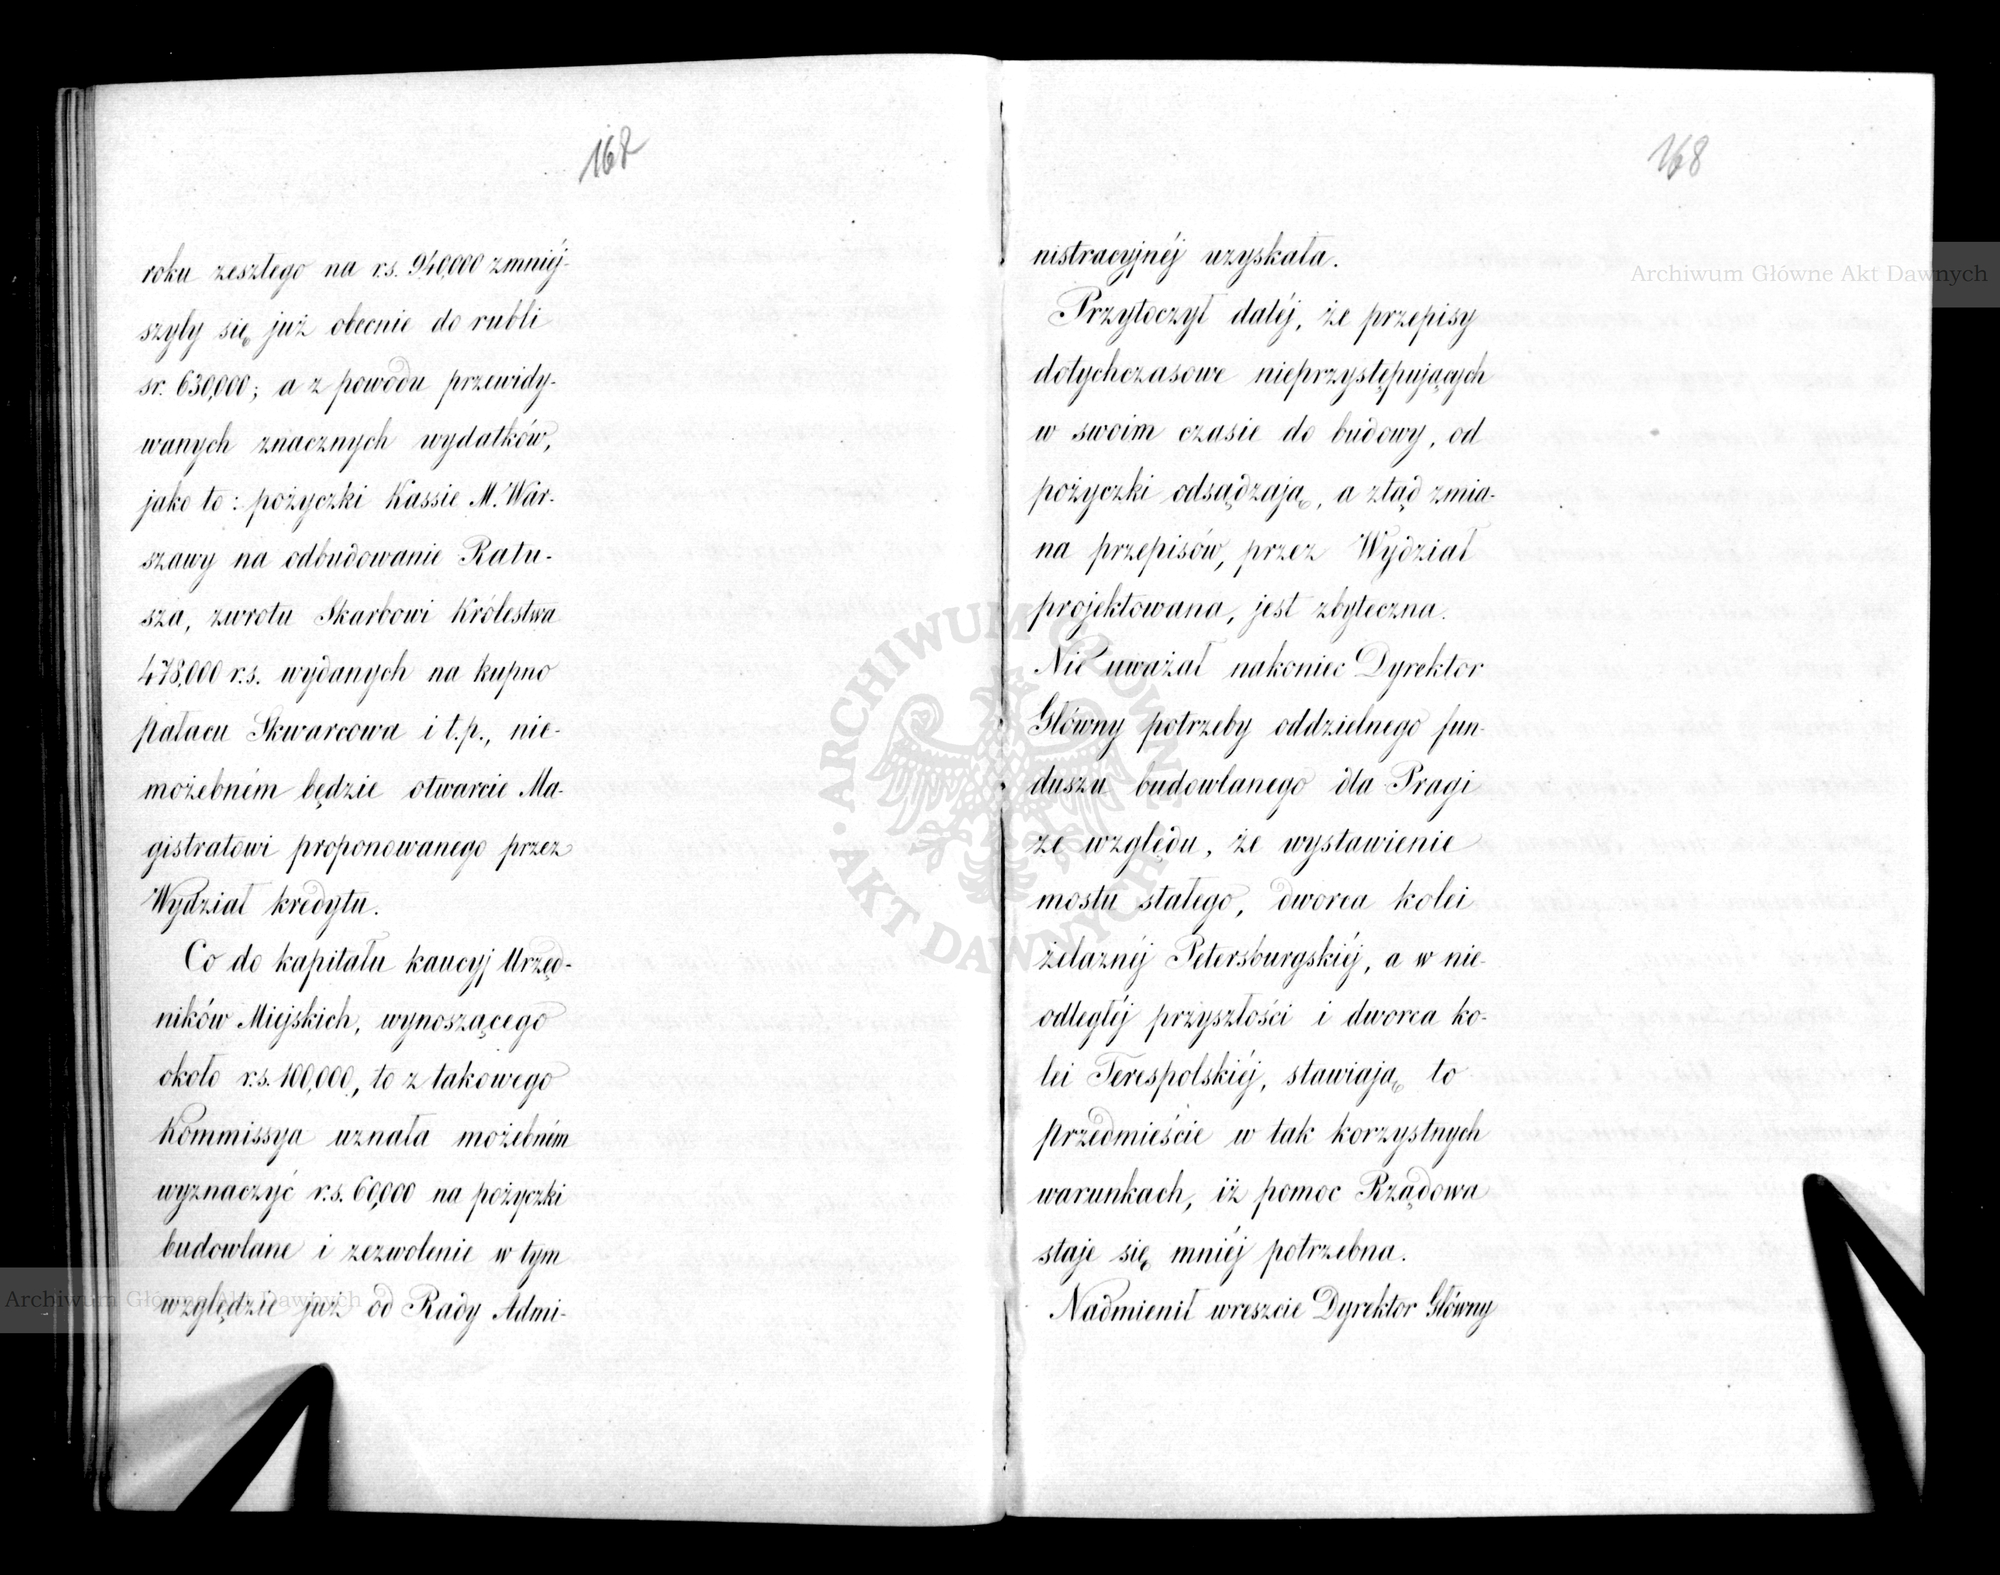 167
roku zeszłego na r.s. 940,000 zmniéj-
szyły się już obecnie do rubli
sr. 630,000; a z powodu przewidy-
wanych znacznych wydatków,
jako to: pożyczki Kassie M. War-
szawy na odbudowanie Ratu-
sza, zwrotu Skarbowi Królestwa
478,000 r.s. wydanych na kupno
pałacu Skwarcowa i t.p., nie-
możebném będzie otwarcie Ma-
gistratowi proponowanego przez
Wydział kredytu.
Co do kapitału kaucyj Urzęd-
ników Miejskich, wynoszącego
około r.s. 100,000, to z takowego
Kommissya uznała możebném
wyznaczyć r.s. 60,000 na pożyczki
budowlane i zezwolenie w tym
względzie już od Rady Admi-
168
nistracyjnéj uzyskała.
Przytoczył daléj, że przepisy
dotychczasowe nieprzystępujących
w swoim czasie do budowy, od
pożyczki odsądzają, a ztąd zmia-
na przepisów, przez Wydział
projektowana, jest zbyteczna.
Nie uważał nakoniec Dyrektor
Główny potrzeby oddzielnego fun-
duszu budowlanego dla Pragi
ze względu, że wystawienie
mostu stałego, dworca kolei
żelaznéj Petersburgskiéj, a w nie-
odległéj przyszłości i dworca ko-
lei Terespolskiéj, stawiają to
przedmieście w tak korzystnych
warunkach, iż pomoc Rządowa
staje się mniéj potrzebna.
Nadmienił wreszcie Dyrektor Główny
Archiwum Główne Akt Dawnych
Archiwum Główne Akt Dawnych
ARCHIWUM GŁÓWNE · AKT DAWNYCH ·